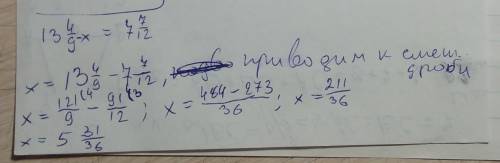 13 4/9 - x = 7 7/12
x = 13 4/9 - 7 7/12, приводим к смеш. дроби
x = 121/9 (4 - 91/12 (3 ; x = 484-273/36 ; x = 211/36
x = 5 31/36